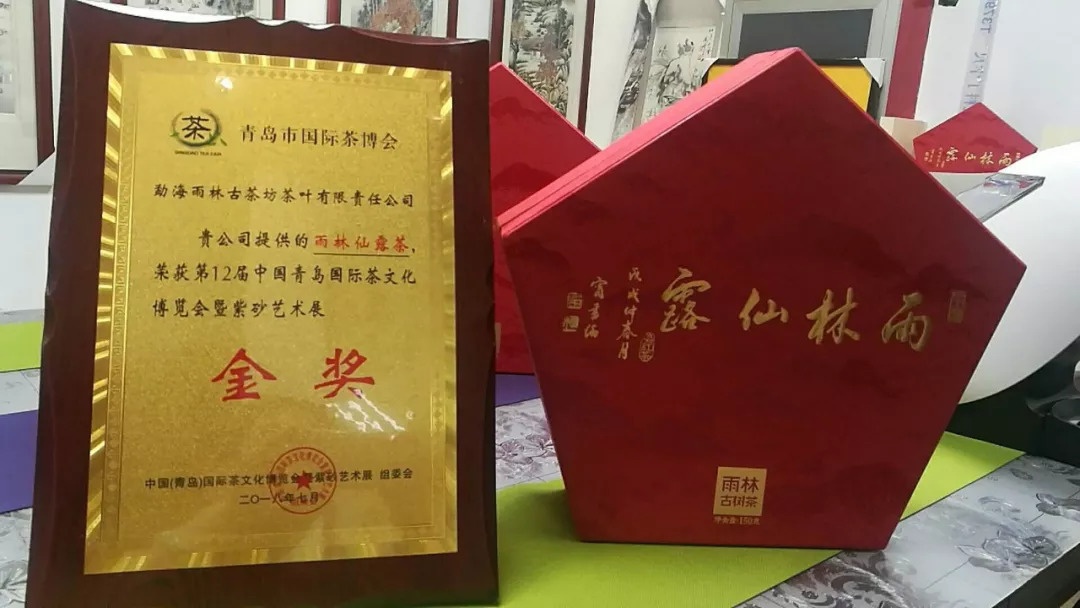 茶
QINGDAO TEA FAIR
青岛市国际茶博会
勐海雨林古茶坊茶叶有限责任公司
贵公司提供的雨林仙露茶,
荣获第12届中国青岛国际茶文化
博览会暨紫砂艺术展
金奖
中国(青岛)国际茶文化博览会暨紫砂艺术展 组委会
二〇一八年七月
雨林仙露
戊戌仲春月
雨林
古树茶
净含量:150克
雨林仙露